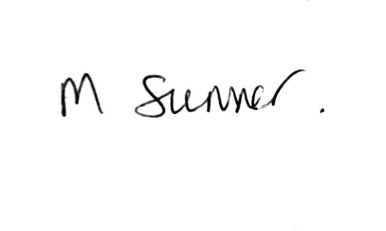 M Sumner.